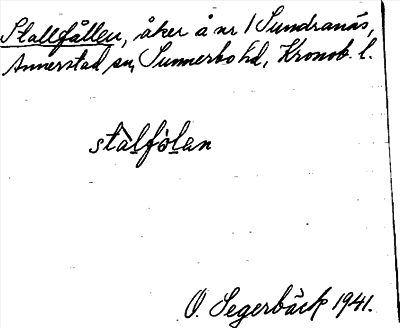 Stallfållen, åker å nr 1 Sundranäs,
Annerstad sn, Sunnerbo hd, Kronob. l.
stàlfòlan
O. Segerbäck 1941.